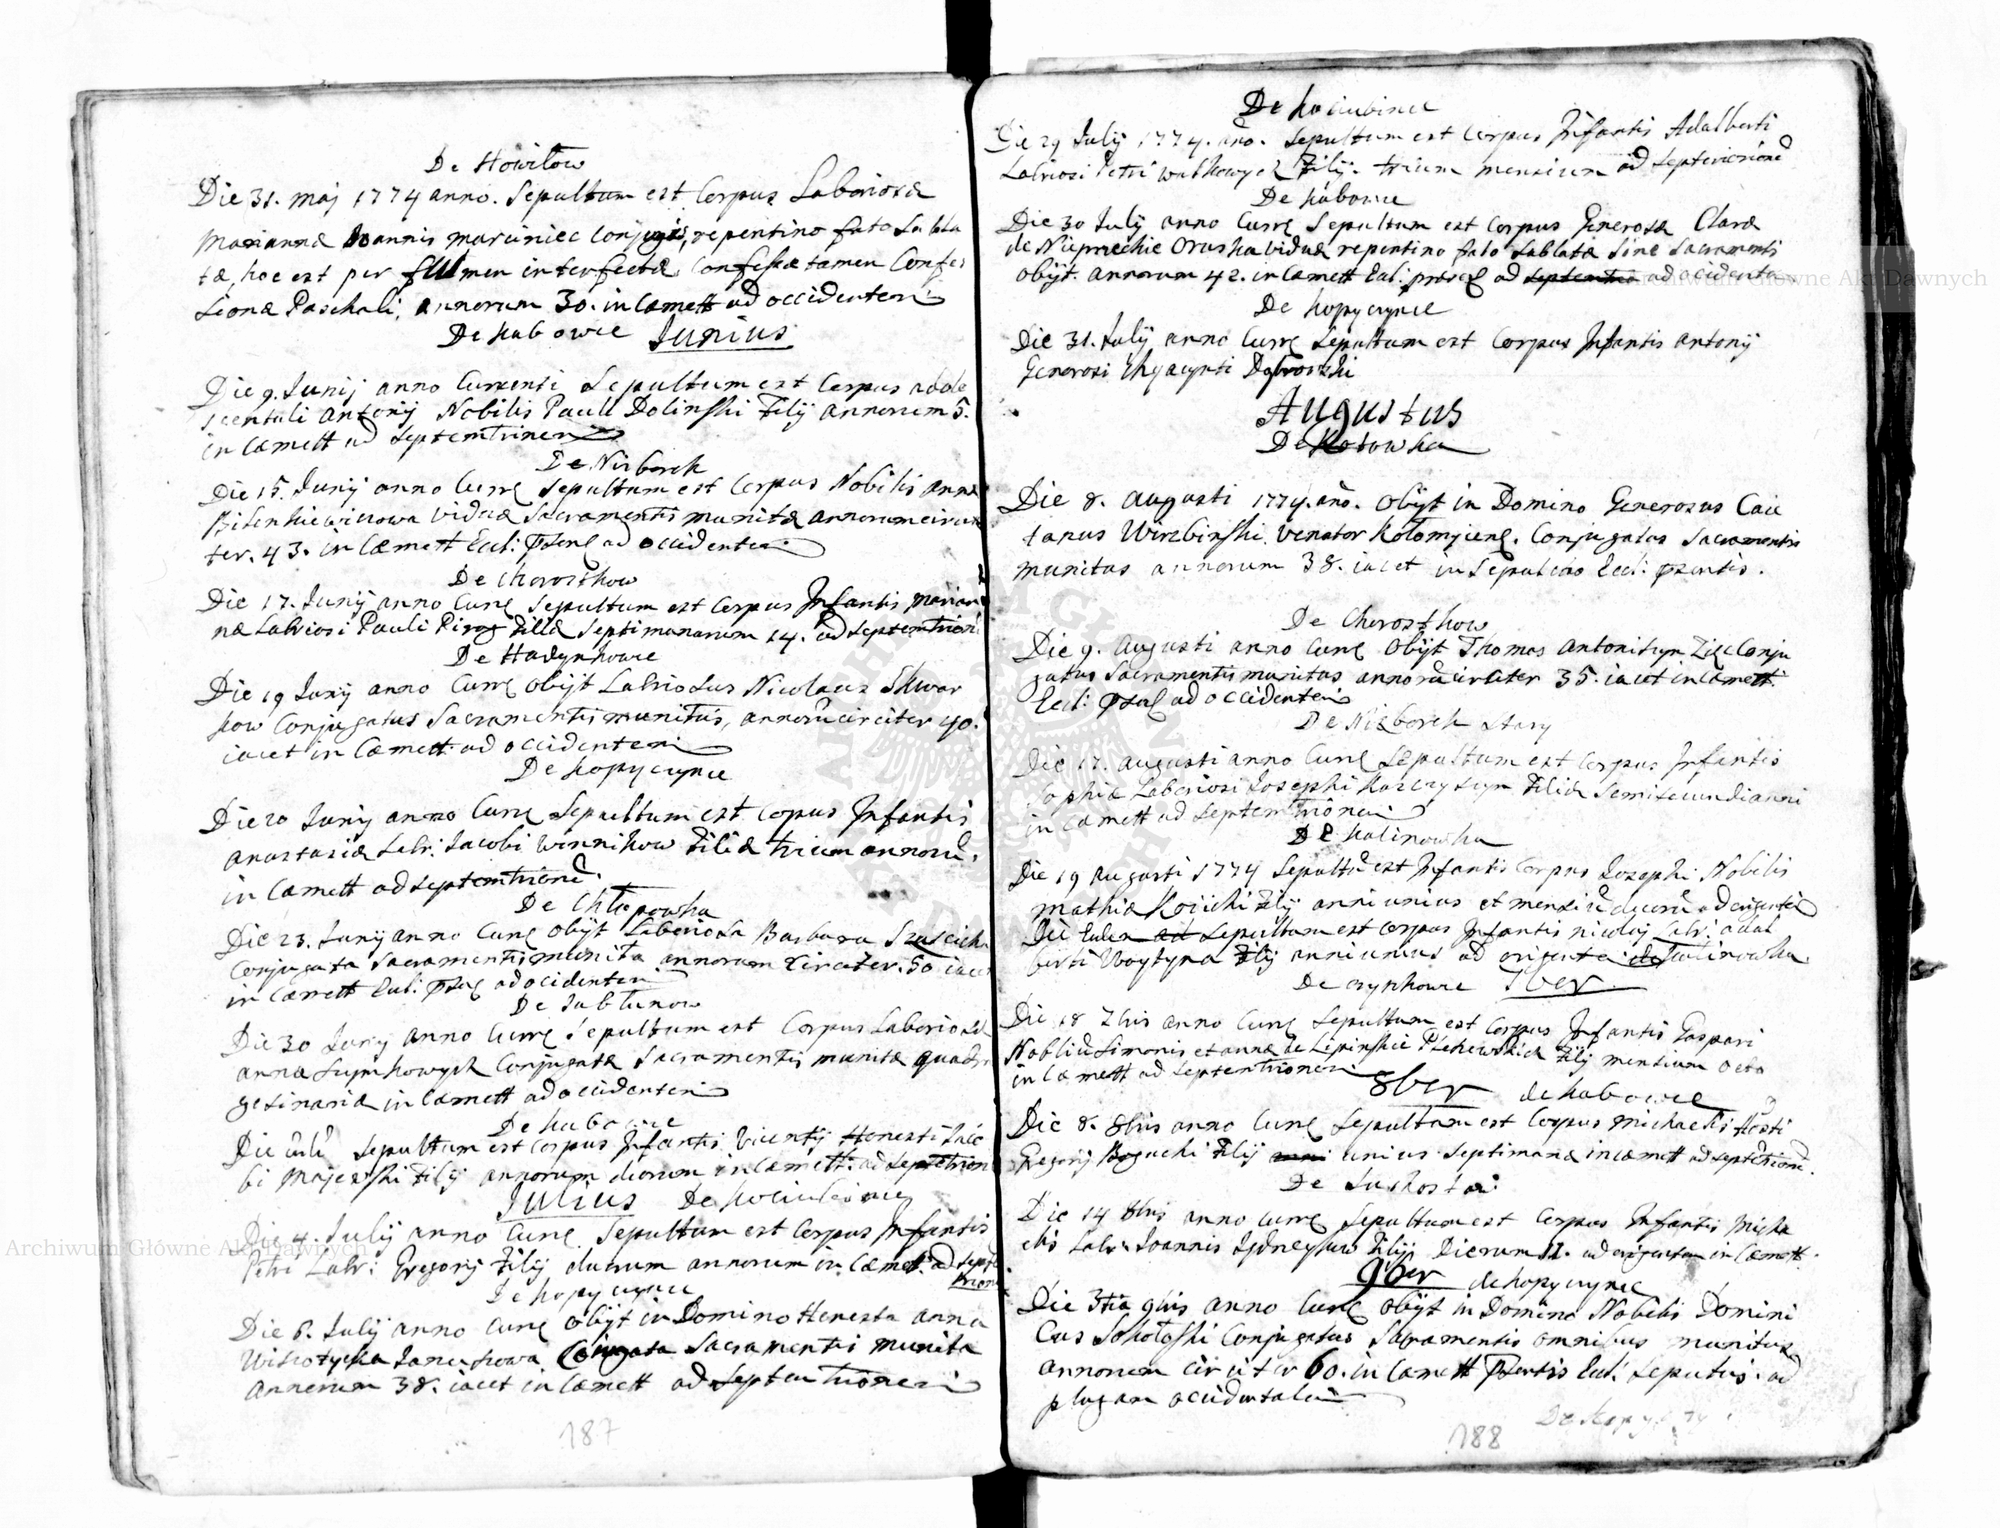 De Howilow
Die 31. maj 1774 anno. Sepultum est Corpus Laboriosæ
Mariannæ Joannis marciniec Conjugis, repentino fato subla
tæ, hoc est per fulmen interfectæ, Confessæ tamen Confes
sionæ Paschali, annorum 30. in Cæmett ad occidentem
De habowie Junius
Die 9. Junij anno Currenti Sepultum est Corpus adole
scentuli Antonij Nobilis Pauli Dolinski Filij annorum 5.
in Cæmett ad Septemtrinem
De Nisborek
Die 15. Junij anno Curre Sepultum est Corpus Nobilis annæ
viduæ Sacramentis munitæ annorum circi
ter. 43. in Cæmett Eccl: ad occidentem
De Chorosthow
Die 17. Junij anno Curre Sepultum est Corpus Infantis Marian
næ Labriosi Pauli Pirog Filiæ Septimanarum 14. ad Septemtrion
De Hadynkowce
Die 19 Junij anno Curre obijt Labriosus Nicolaus Skwar
kow Conjugatus Sacramentis munitus, annorũ circiter 40.
iacet in Cæmett ad occidentem
De Kopyczynce
Die 20 Junij anno Curre Sepultum est Corpus Infantis
Anastasiæ Labr: Jacobi Winnikow Filiæ trium annorũ.
in Cæmett ad Septemtrionẽ.
De Chlopowka
Die 23. Junij anno Curre obijt Laboriosa Barbara
Conjugata Sacramentis munita annorum Circiter. 50 iacet
in Cæmett Eccl: ad ocidentem
De Jablunow
Die 30 Junij anno Curre Sepultum est Corpus Laboriosæ
Annæ Conjugatæ Sacramentis munitæ quadra
gesinariæ in Cæmett ad occidentem
De habowie
Die Sepultum est Corpus Infantis Vicentij Honesti Jaco
bi Majewski Filij annorum duorum in Cæmett: ad Septemtrion
Julius De Kociubince
Die 4. Julij anno Curre Sepultum est Corpus Infantis
Petri Labr: Gregorij Filij duorum annorum in Cæmet. ad Septe
trion
De Kopyczynce
Die 6. Julij anno Curre obijt in Domino Honesta Anna
Janeskowa Conjugata Sacramentis munita
Annorum 38. iacet in Cæmett ad Septemtrionem
187
De Kociubince
Die 29 Julij 1774. año. Sepultum est Corpus Infantis Adalberti
Labriosi Petri Filij. trium mensium ad Septemtrionẽ
De habowie
Die 30 July anno Curre Sepultum est Corpus Generosæ Claræ
de viduæ repentino fato Sublatæ Sine Sacramentis
obijt. annorum 42. in Cæmett Eccl: ad septemtrio ad ocidente
De Kopyczynce
Die 31. Julij anno Curre Sepultum est Corpus Infantis Antonij
Generosi Dąbrowski
Augustus
De Kotowka
Die 8. Augusti 1774. año. obijt in Domino Generosus Caie
tanus Wirzbinski. Venator Kolomyiens. Conjugatus Sacramentis
munitus annorum 38. iacet in Sepulcro Eccl: pzentis.
De Chorosthow
Die 9. Augusti anno Curre obijt Thomas Antoniszyn Conju
gatus Sacramentis munitus annorũ circiter 35. iacet in Cæmett.
Eccl: ad occidentem
De Nizborek Stary
Die 17. augusti anno Curre Sepultum est Corpus Infantis
Sophiæ Laboriosi Josephi Filiæ Semisecundi anni
in Cæmett ad Septemtrionem
De Kalinowka
Die 19 Augusti 1774 Sepultũ est Infantis Corpus Josephi Nobilis
Mathiæ Koiicki Filij anni unius et mensiũ duorũ ad
Die Eadem ad Sepultum est Corpus Infantis Nicolaj Labr: adal
berti Woytyna Filij anni unius ad origente de Kalinowka.
De Oryszkowce 7ber
Die 18 7bris anno Curre Sepultum est Corpus Infantis Gaspari
Nobiliũ Simonis et annæ de Lipinskie Filij mensium octo
in Cæmett ad Septemtrionem
8ber de habowie
Die 8. 8bris anno Curre Sepultum est Corpus Michaelis
Gregorij Filij anni unius Septimanæ in Cæmett ad Septetrionẽ.
De Suchostaw
Die 14 8bris anno Curre Sepultum est Corpus Infantis Micha
elis Labr: Joannis Filij Dierum 12. ad origentem in Cæmett.
9ber de Kopyczynce
Die 3tia 9bris anno Curre obijt in Domino Nobilis Domini
cus Conjugatus Sacramentis omnibus munitus
annorum circiter 60. in Cæmett Pzentis Eccl: Sepultus. ad
plagam occidentalem
188
Archiwum Główne Akt Dawnych
Archiwum Główne Akt Dawnych